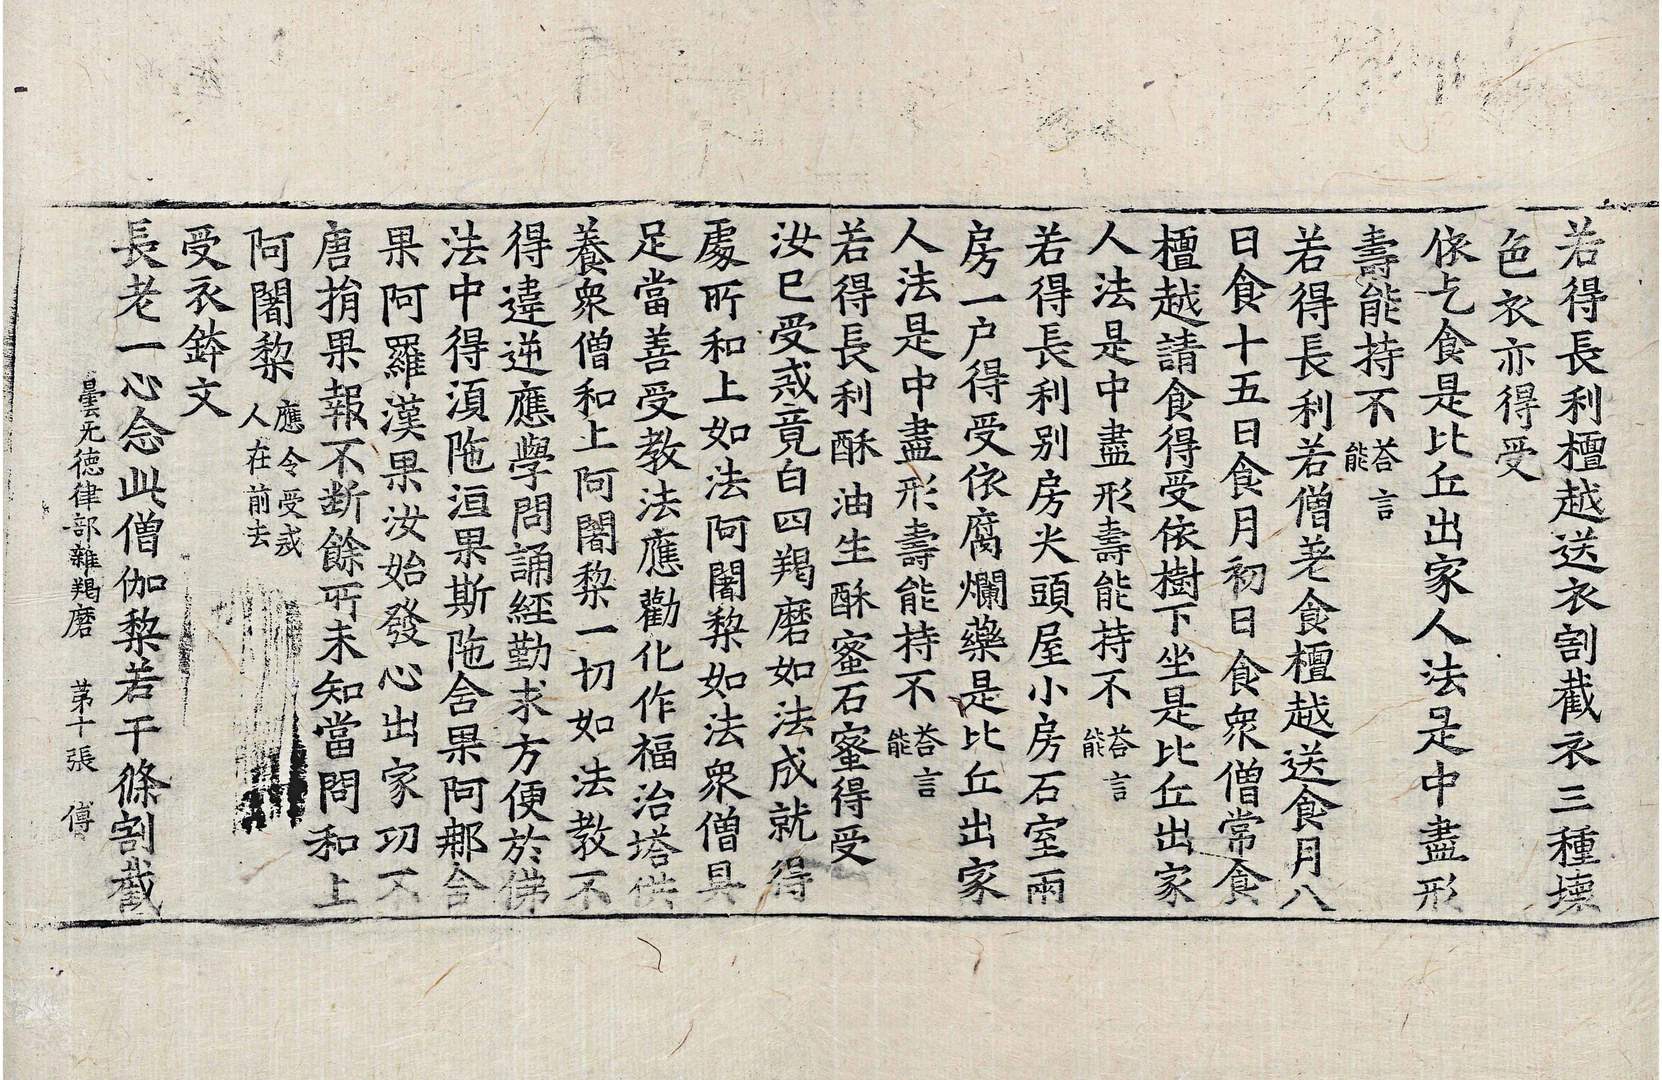 若得長利檀越送衣割截衣三種壞
色衣亦得受
依乞食是比丘出家人法是中盡形
壽能持不荅言能
若得長利若僧差食檀越送食月八
日食十五日食月初日食衆僧常食
檀越請食得受依樹下坐是比丘出家
人法是中盡形壽能持不荅言能
若得長利别房尖頭屋小房石室兩
房一户得受依腐爛藥是比丘出家
人法是中盡形壽能持不荅言能
若得長利酥油生酥蜜石蜜得受
汝已受戒竟白四羯磨如法成就得
處所和上如法阿闍梨如法衆僧具
足當善受教法應勸化作福治塔供
養衆僧和上阿闍梨一切如法教不
得違逆應學問誦經勤求方便於佛
法中得湏陁洹果斯陁含果阿郍含
果阿羅漢果汝始發心出家功不
唐捐果報不断餘所未知當問和上
阿闍梨應令受戒人在前去
受衣鉢文
長老一心念此僧伽梨若干條割截
曇无德律部雜羯磨 苐十張 傅